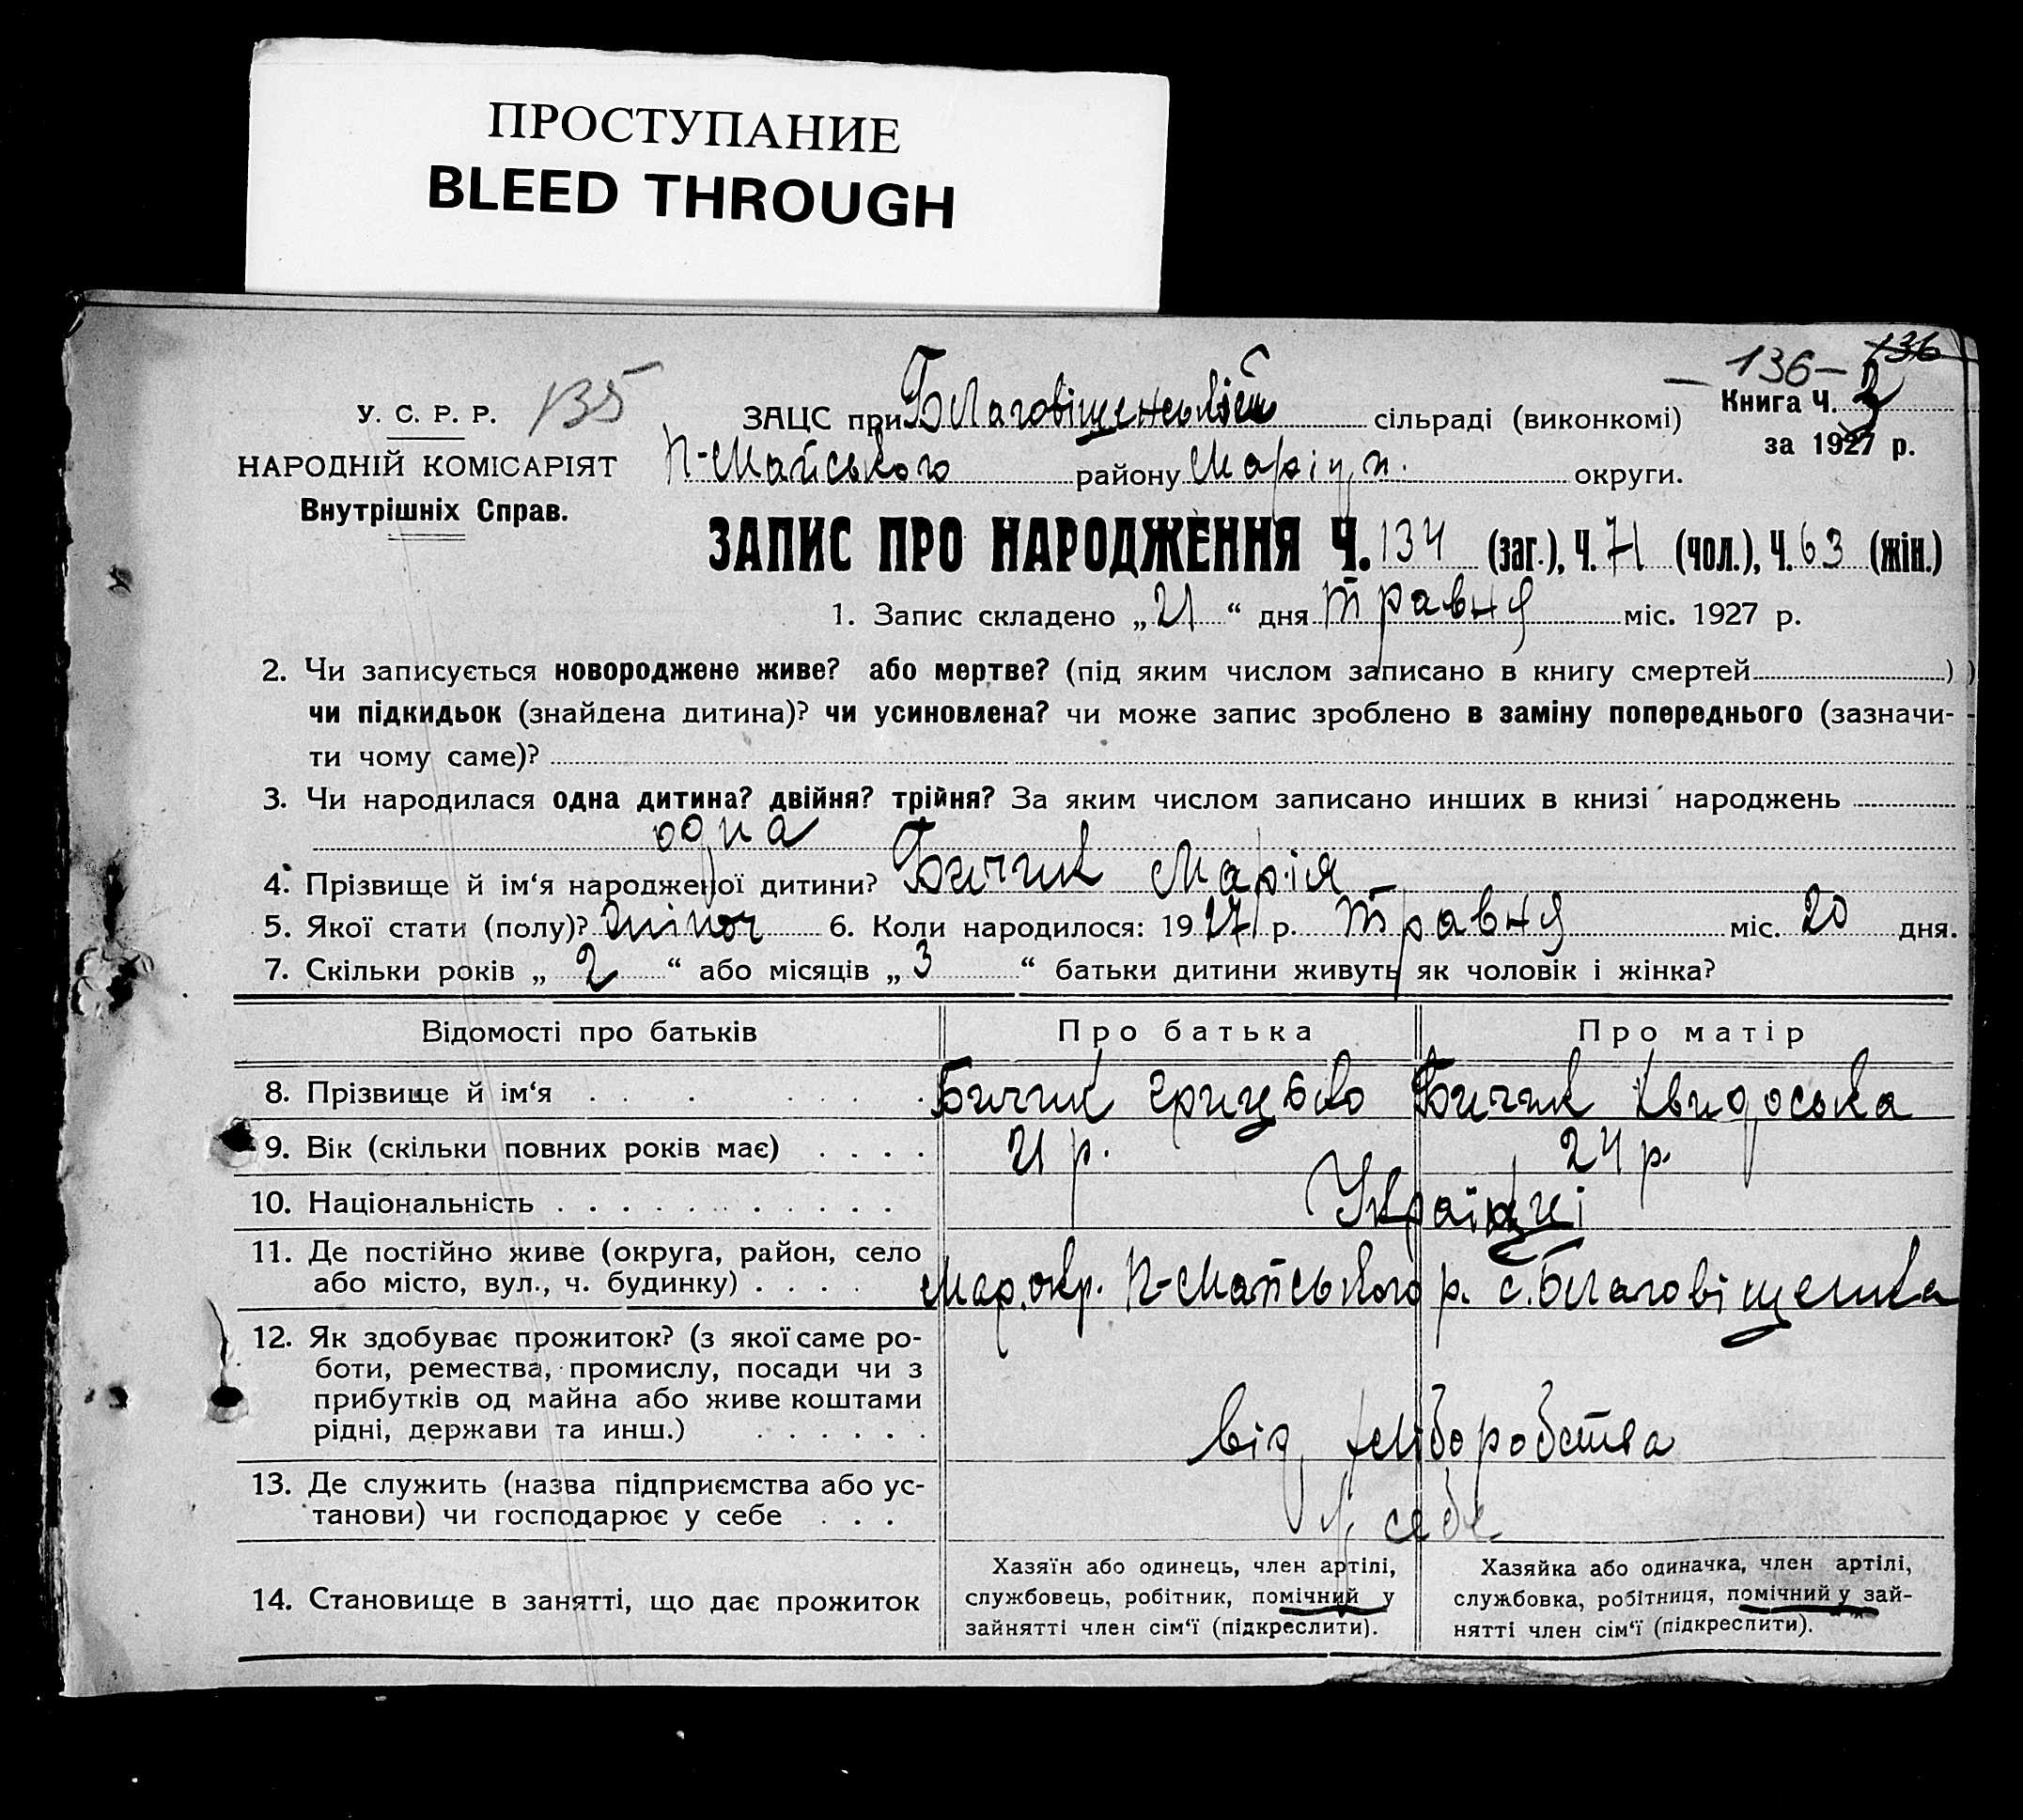 ПРОСТУПАНИЕ
BLEED THROUGH
136
136
135
У. С. Р. Р.
НАРОДНІЙ КОМІСАРІЯТ
Внутрішніх Справ.
ЗАЦС при Благовіщенській сільраді (виконкомі)
Книга Ч. 2
за 1927 р.
П-Майського району Маріуп. округи.
ЗАПИС ПРО НАРОДЖЕННЯ Ч. 134 (заг.), Ч. 71 (чол.), Ч. 63 (жін.)
1. Запис складено „21“ дня травня міс. 1927 р.
2. Чи записується новороджене живе? або мертве? (під яким числом записано в книгу смертей )
чи підкидьок (знайдена дитина)? чи усиновлена? чи може запис зроблено в заміну попереднього (зазначи-
ти чому саме)?
3. Чи народилася одна дитина? двійня? трійня? За яким числом записано инших в книзі народжень
одна
4. Прізвище й ім‘я народженої дитини? Бичик Марія
5. Якої стати (полу)? жіноч 6. Коли народилося: 1927 р. травня міс. 20 дня.
7. Скільки років „ 2 “ або місяців „ 3 “ батьки дитини живуть як чоловік і жінка?
Відомості про батьків
Про батька
Про матір
8. Прізвище й ім‘я Бичик Грицько Бичик Хвидоська
9. Вік (скільки повних років має) 21 р. 24 р.
10. Національність Українці
11. Де постійно живе (округа, район, село
або місто, вул., ч. будинку) Мар. окр. П-Майського р. с. Благовіщенка
12. Як здобуває прожиток? (з якої саме ро-
боти, ремества, промислу, посади чи з
прибутків од майна або живе коштами
рідні, держави та инш.) від хліборобства
13. Де служить (назва підприємства або ус-
танови) чи господарює у себе у себе
14. Становище в занятті, що дає прожиток
Хазяїн або одинець, член артілі,
службовець, робітник, помічний у
зайнятті член сім‘ї (підкреслити).
Хазяйка або одиначка, член артілі,
службовка, робітниця, помічний у зай-
нятті член сім‘ї (підкреслити).